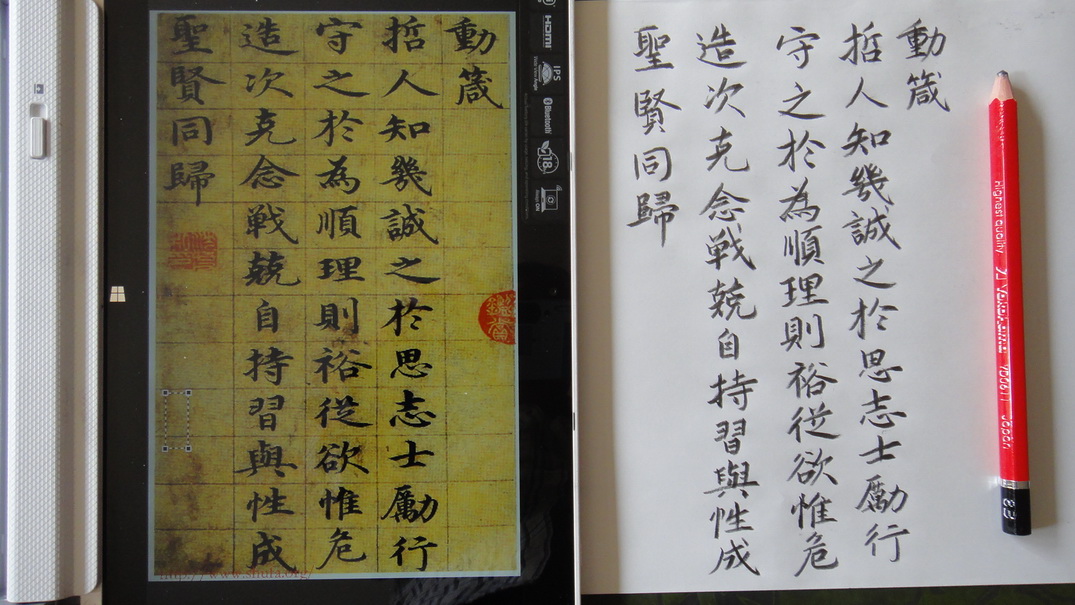 動箴
哲人知幾誠之於思志士勵行
守之於為順理則裕從欲惟危
造次克念戰兢自持習與性成
聖賢同歸
http://www.shufa.org/
HDMI
IPS
Bluetooth
動箴
哲人知幾誠之於思志士勵行
守之於為順理則裕從欲惟危
造次克念戰兢自持習與性成
聖賢同歸
Highest quality
Japan